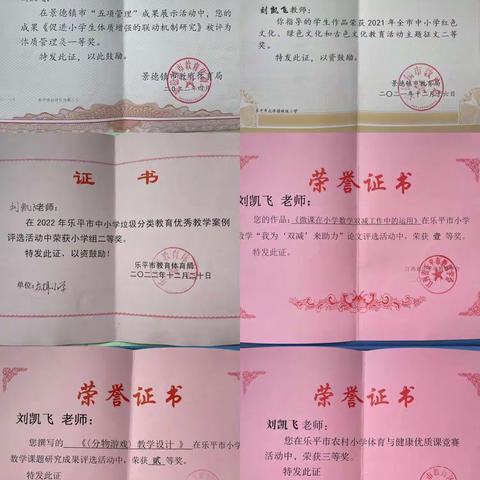 在景德镇市“五项管理”成果展示活动中,您的
成果《促进小学生体质增强的联动机制研究》被评为
体质管理类一等奖。
特发此证,以此鼓励。
景德镇市教育体育局
刘凯飞教师:
你指导的学生作品荣获2021年全市中小学红色
文化、绿色文化和古色文化教育活动主题征文二等
奖。
特发此证,以资鼓励!
景德镇市教育局
二〇二一年十二月十六日
证 书
刘凯飞老师:
在2022年乐平市中小学垃圾分类教育优秀教学案例
评选活动中荣获小学组二等奖。
特发此证,以资鼓励!
乐平市教育体育局
二〇二二年十二月二十日
单位:
荣誉证书
刘凯飞 老师:
您的作品:《微课在小学数学双减工作中的运用》在乐平市小学
数学“我为‘双减’来助力”论文评选活动中,荣获 壹 等奖。
特发此证。
荣誉证书
刘凯飞 老师:
您撰写的 《《分物游戏》教学设计 》在乐平市小学
数学课题研究成果评选活动中,荣获 贰 等奖。
特发此证
荣誉证书
刘凯飞 老师:
您在乐平市农村小学体育与健康优质课竞赛
活动中,荣获三等奖。
特发此证